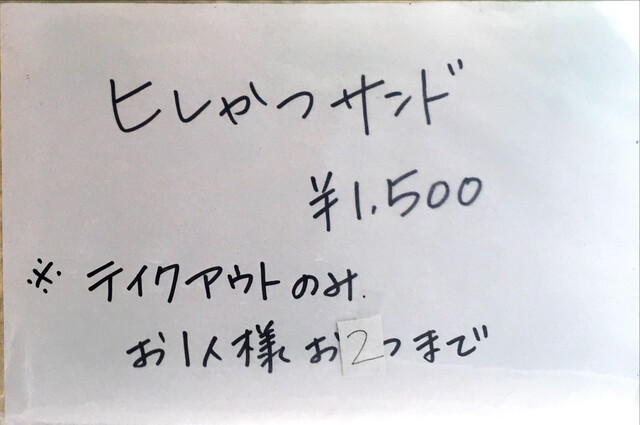 ヒレかつサンド
¥1,500
※ テイクアウトのみ.
お1人様お2つまで